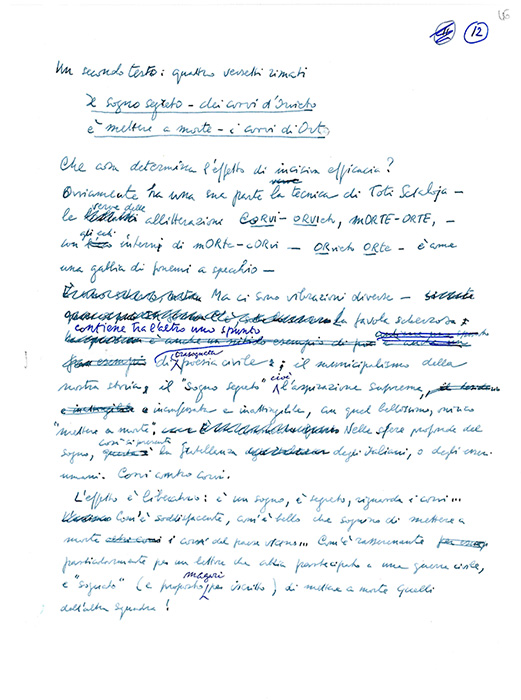 12
Un secondo testo: quattro versetti rimati
Il sogno segreto - dei corvi d'Orvieto
è mettere a morte - i corvi di Orte
Che cosa determina l'effetto di incisiva efficacia?
Ovviamente ha una sua parte la tecnica di Toti Scialoja -
le allitterazioni CORVI - ORVIeto, mORTE - ORTE, -
con gli echi interni di mORte - cORvi - ORvieto ORte - è come
una gabbia di fonemi a specchio -
Ma ci sono vibrazioni diverse - La favola scherzosa
contiene tra l'altro uno spunto
di trasognata poesia civile: il municipalismo della
nostra storia; il "sogno segreto" cioè l'aspirazione suprema,
inconfessata e inattingibile, con quel bellissimo, unico
"mettere a morte". Nelle sfere profonde del
sogno, così si presenta la fratellanza degli italiani, o degli esseri
umani. Corvi contro corvi.
L'effetto è liberatorio: è un sogno, è segreto, riguarda i corvi...
Com'è soddisfacente, com'è bello che sognino di mettere a
morte i corvi del paese vicino... Com'è rasserenante
particolarmente per un lettore che abbia partecipato a una guerra civile,
e "sognato" (e proposto magari per iscritto) di mettere a morte quelli
dell'altra squadra!